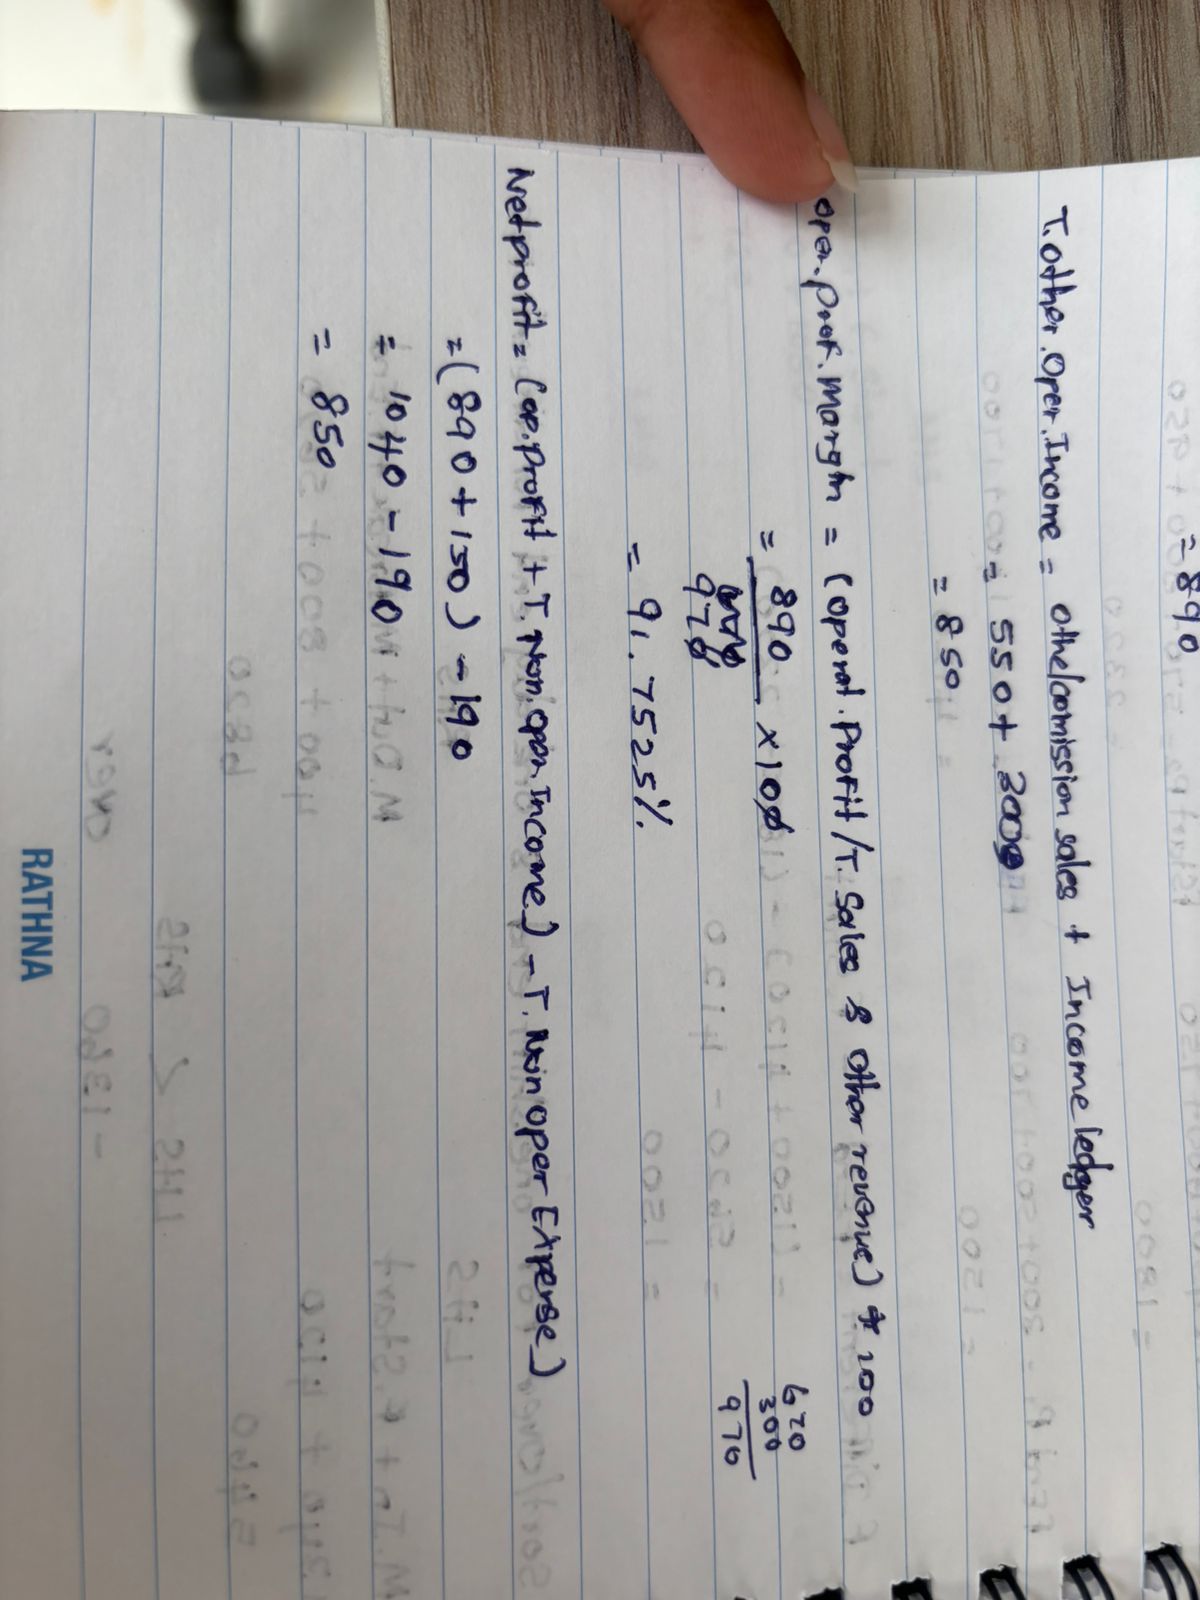 = 890
T. Other. Oper. Income = other/comission sales + Income ledger
= 550 + 300
= 850
Oper. Prof. Margin = (operat. Profit / T. Sales & Other revenue) * 100
= 890 × 100
970
= 91.7525%
620
300
970
Net profit = (op. Profit + T. Non. open. Income) - T. Non oper Expense)
= (890 + 150) - 190
= 1040 - 190
= 850
RATHNA